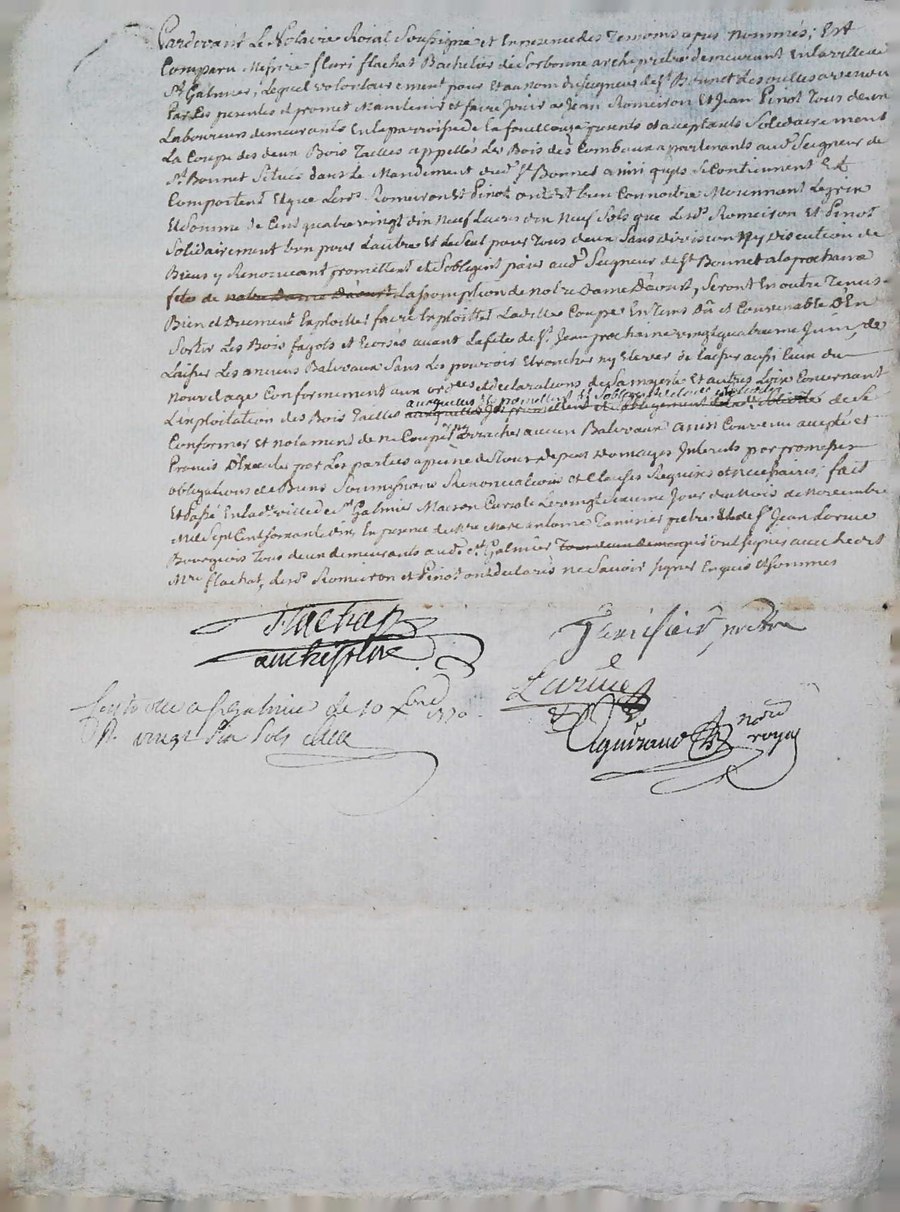 Pardevant Le Notaire Roial Soussigné et En presence des Temoins apres Nommés; Est
Comparu Messire fleuri flachat Bachelier de Sorbonne archeprêtre demeurant En la ville de
St Galmier, Lequel volontairement pour et au nom du Seigneur de St Bonnet des oulles a vendu
Par Les presentes et promet Maintenir et faire Jouir a Jean Romeiron Et Jean Pinot Tous deux
Laboureurs demeurants En la parroisse de la fouillouze presents et acceptants Solidairement
La Coupe des deux Bois Tailles appellés Les Bois des Combeaux appartenants aud. Seigneur de
St Bonnet Situés dans Le Mandement dud. St Bonnet ainsi quils Se Contiennent Et
Comportent Et que Lesd. Romeiron Et Pinot ont dit bien Connoitre Moiennant Le prix
Et Somme de Cent quatre vingt dix Neuf Livres dix Neuf Sols que Lesd. Romeiron Et Pinot
Solidairement Lun pour Lautre Et Le Seul pour Tous deux Sans division Ny discution de
Biens y Renonceant promettent et Sobligent païer aud. Seigneur de St Bonnet a la prochaine
fete de notre Dame Daoust Lassomption de notre Dame Daoust, Seront En outre Tenus
Bien et Duement Exploitter faire Exploitter Laditte Coupe En Tems Dû et Convenable D'En
Sortir Les Bois fagots et Ecorses avant La fete de St Jean prochaine vingt quatrieme Juin, de
Laisser Les anciens Baliveaux Sans Les pouvoir Etroncher ny Elever de laisser aussi Ceux du
Nouvel age Conformement aux ordces et declarations de Sa majesté Et autres Loix Concernant
auxquelles Ils promettent et Sobligent
L'exploitation des Bois Tailles auxquelles Ils promettent et obligement de Se
Conformer et notament de ne Couper ny arracher aucun Baliveaux ainsi Convenu accepté et
Promis D'Executer par Les parties a peine de Tous depens Domages Interets par promesses
obligations de Biens Soumissions Renonciations et Clauses Requises et Necessaires; fait
Et Passé En lad. ville de St Galmier Maison Curiale Le vingt deuxieme Jour du Mois de Novembre
Mil Sept Cent soixante dix En presence de Mre Marc antoine pretre Et de Sr Jean Larue
Bourgeois Tous deux demeurants aud. St Galmier Tous deux demeurés ont Signes avec Led.
Mre flachat, Lesd. Romeiron et Pinot ont declarés ne Savoir Signer Enquis Et Sommes
flachat
archiprêtre
prêtre
Larue
Aguiraud Nore
royal
Controllé a St Galmier le 10 Xbre 1770
Rt vingt Six Sols